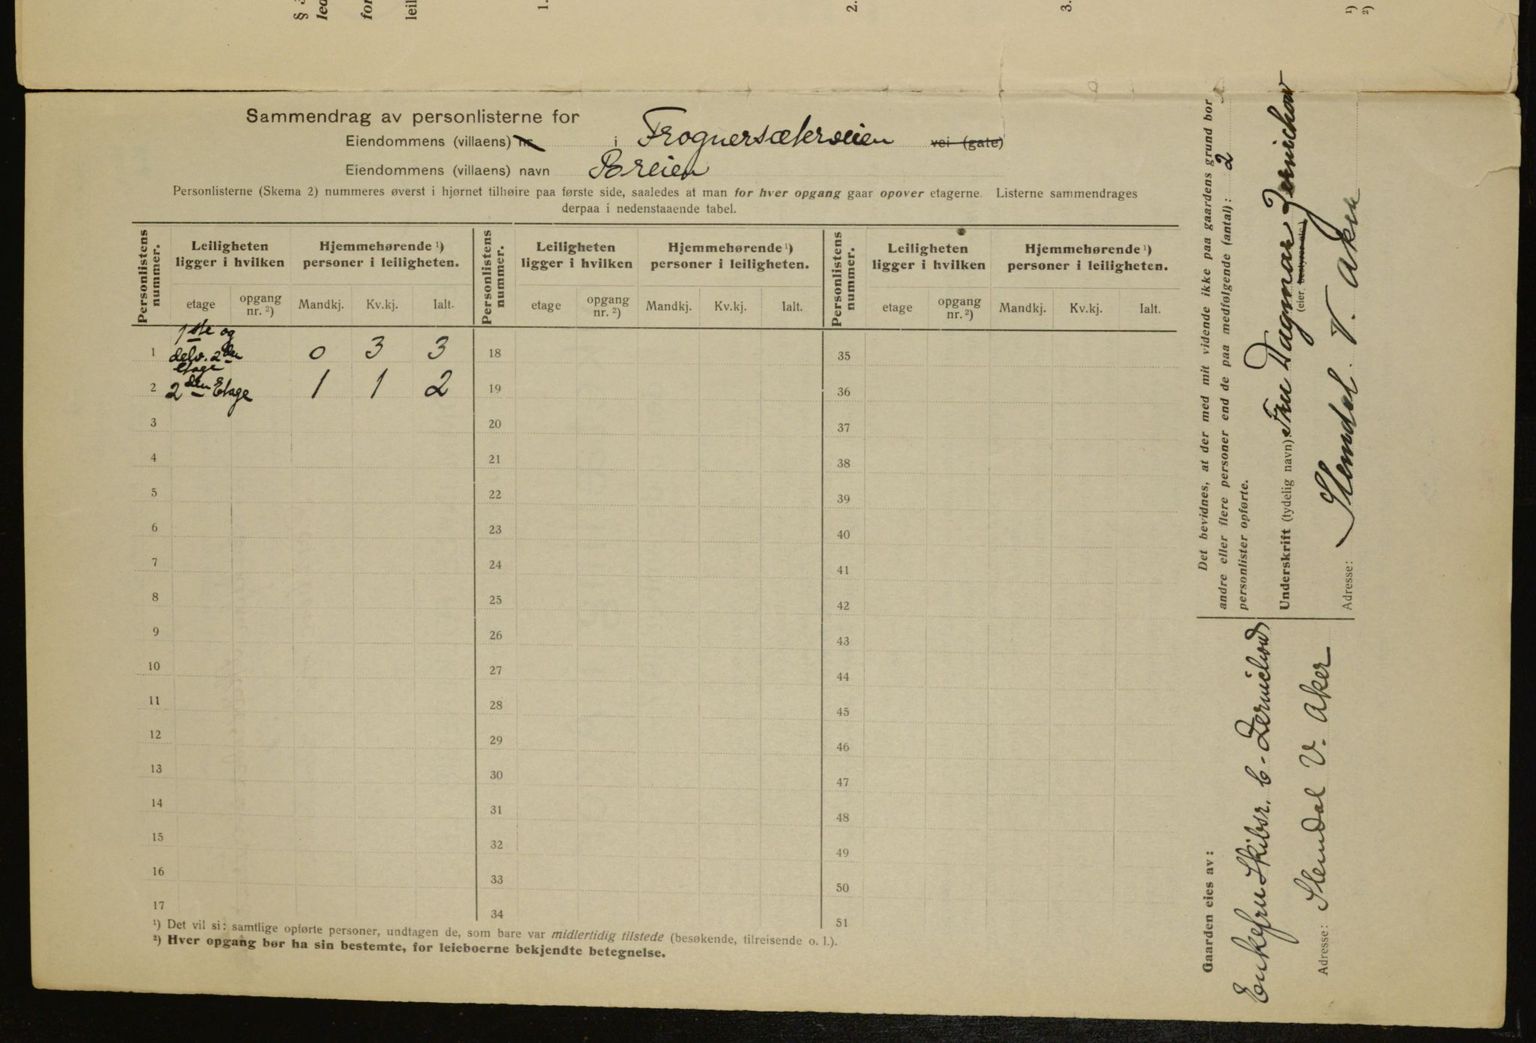 §
lea
for
leil
1.
2.
3.
¹)
²)
Sammendrag av personlisterne for
Eiendommens (villaens) nr. i Frognersæterveien vei (gate)
Eiendommens (villaens) navn Breien
Personlisterne (Skema 2) nummeres øverst i hjørnet tilhøire paa første side, saaledes at man for hver opgang gaar opover etagerne. Listerne sammendrages
derpaa i nedenstaaende tabel.
Personlistens nummer.
Leiligheten ligger i hvilken
Hjemmehørende ¹) personer i leiligheten.
Personlistens nummer.
Leiligheten ligger i hvilken
Hjemmehørende ¹) personer i leiligheten.
Personlistens nummer.
Leiligheten ligger i hvilken
Hjemmehørende ¹) personer i leiligheten.
etage opgang nr. ²) Mandkj. Kv.kj. Ialt. etage opgang nr. ²) Mandkj. Kv.kj. Ialt. etage opgang nr. ²) Mandkj. Kv.kj. Ialt.
1 1ste og delv. 2den etage 0 3 3 18 35
2 2den Etage 1 1 2 19 36
3 20 37
4 21 38
5 22 39
6 23 40
7 24 41
8 25 42
9 26 43
10 27 44
11 28 45
12 29 46
13 30 47
14 31 48
15 32 49
16 33 50
17 34 51
¹) Det vil si: samtlige opførte personer, undtagen de, som bare var midlertidig tilstede (besøkende, tilreisende o. l.).
²) Hver opgang bør ha sin bestemte, for leieboerne bekjendte betegnelse.
Det bevidnes, at der med mit vidende ikke paa gaardens grund bor
andre eller flere personer end de paa medfølgende (antal): 2
personlister opførte.
Underskrift (tydelig navn): Fru Dagmar
(eier,
Adresse: Slemdal V. Aker
Gaarden eies av:
Enkefru Skibsr. C.
Adresse: Slemdal V. Aker